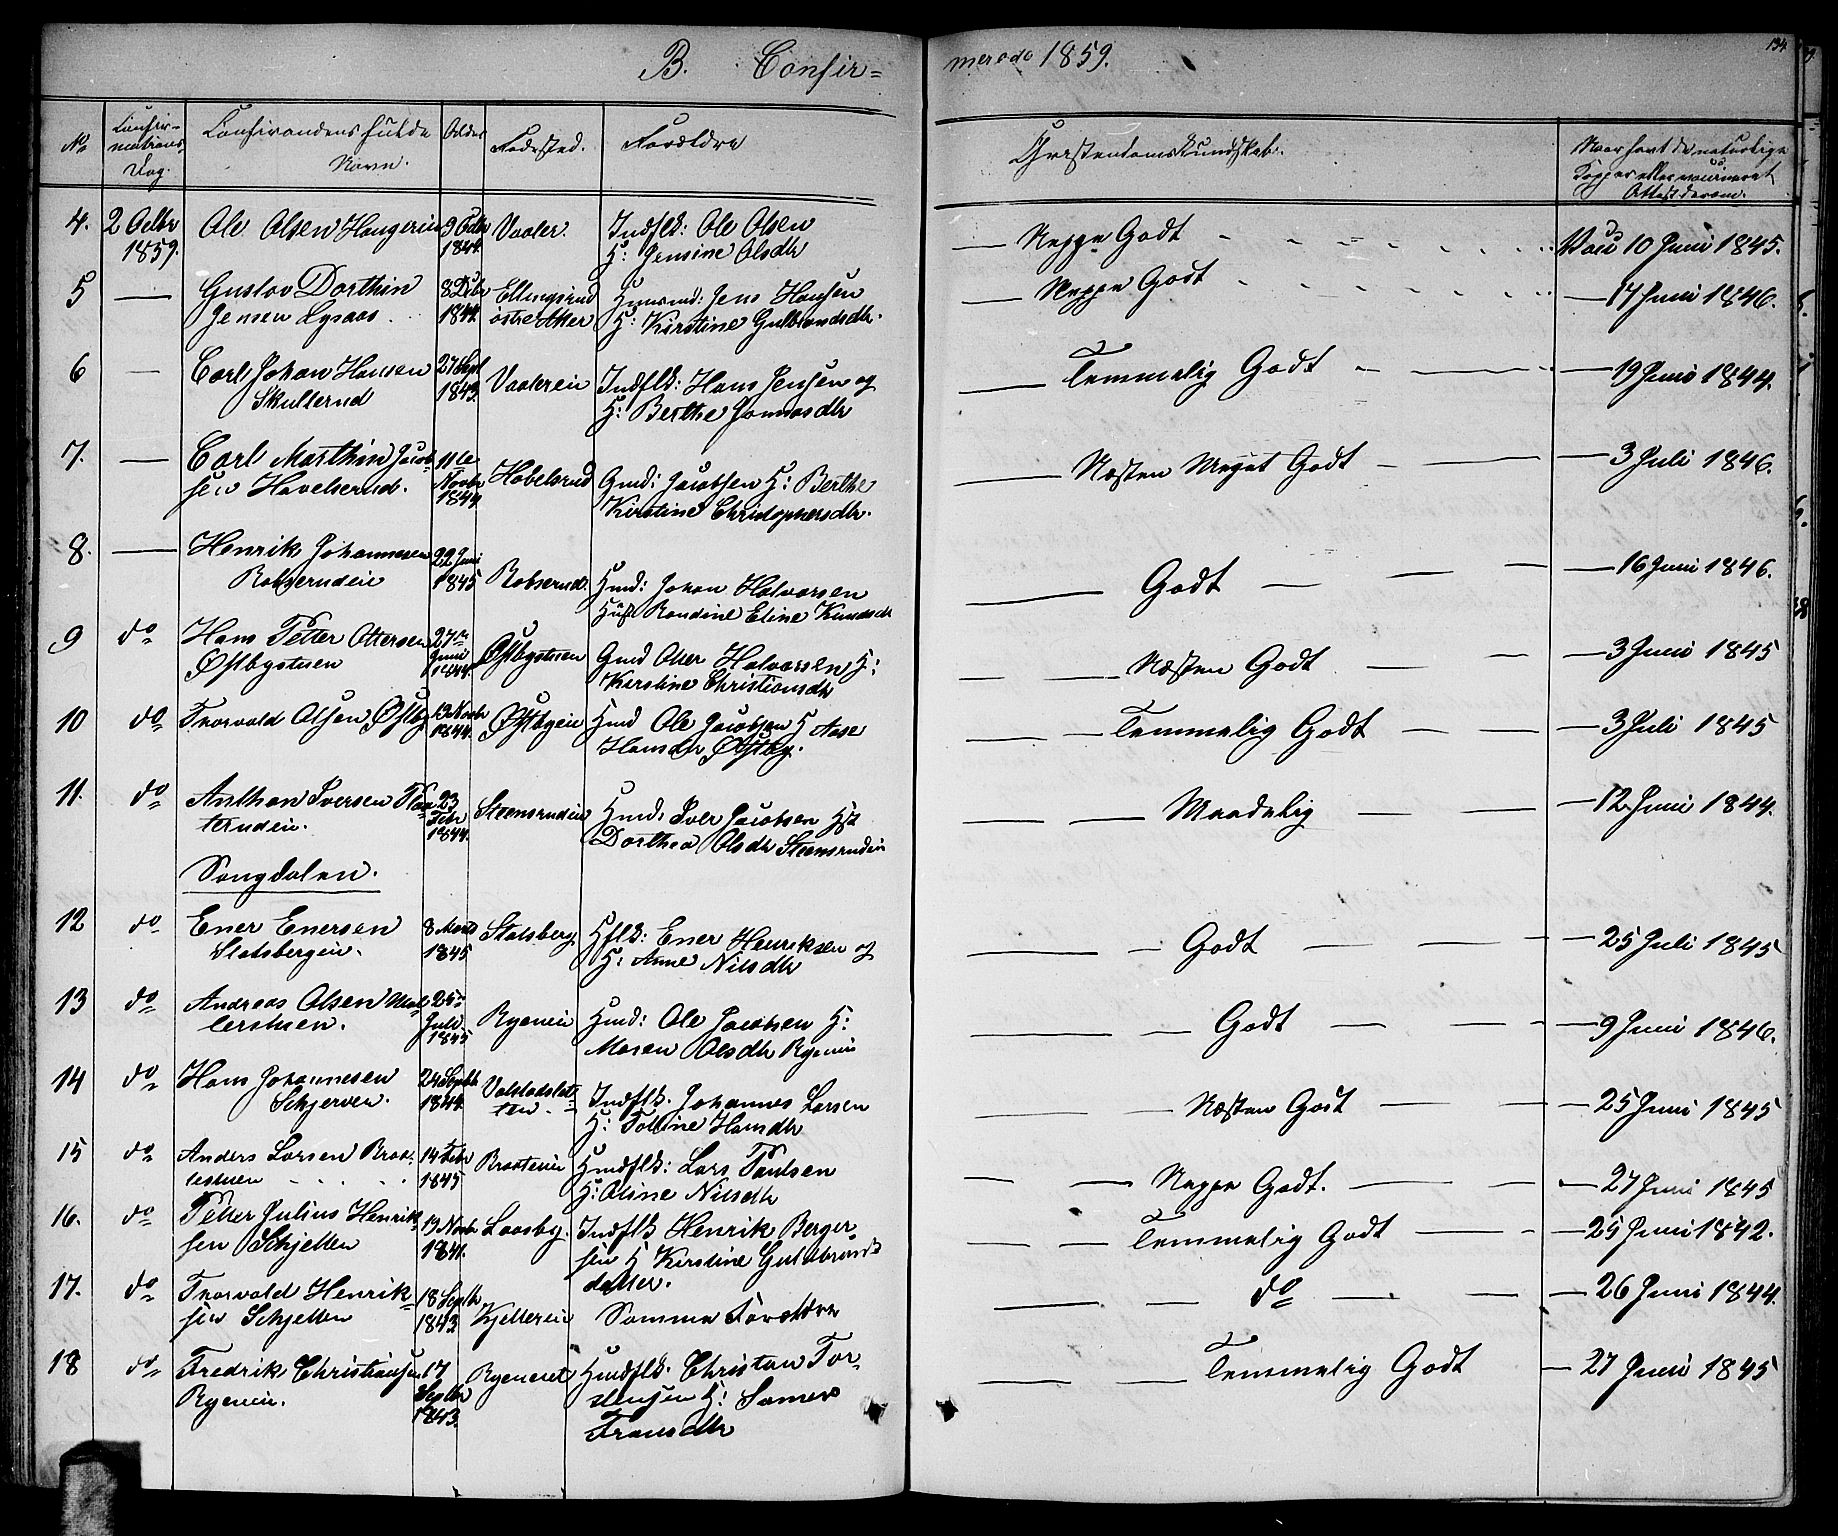 B. Confir=
merede 1859.
134
No
Confir-
mations
Dag.
Confirandens fulde
Navn.
Alder
Fødested.
Forældre
Christendoms Kundskab.
Naar havt de naturlige
Kopper eller vaccineret
Attest derom.
4. 2 Octbr 1859. Ole Olsen Haugeren 9 Octbr 1844. Vaaler. Indflk: Ole Olsen
H: Jensine Olsdtr
— Neppe Godt - - - Vacc 10 Juni 1845.
5 — Gustav Dorthin
Jensen Lysaas. 8 Debr 1844. Ellingsrud
østre Aker Huusmd: Jens Hansen
H: Kirstine Gulbrandsdtr.
— Neppe Godt - - - — 17 Juni 1846.
6 — Carl Johan Hansen
Skullerud 27 Sept 1843. Vaaleren Indflk: Hans Jensen og
H: Berthe Jonnasdtr
— Temmelig Godt — 19 Juni 1844.
7. — Carl Marthin Jacob-
sen Havelserud. 11te Novbr 1844. Habelsrud Gmd: Jacobsen H: Berthe
Kirstine Christophersdtr.
— Næsten Meget Godt — 3 Juli 1846.
8. — Henrik Johannesen
Robserudeie 22 Juni 1845 Robserud. Hmd: Johan Halvorsen
Hust Randine Eline Knudsdtr
— Godt — 16 Juni 1846.
9 do Hans Petter Ottersen
Østbystuen 27de Juni 1844. Østbystuen Gmd Otter Halvorsen H:
Kirstine Christiansdtr
— Næsten Godt — 3 Juni 1845
10 do Thorvald Olsen Østby 13 Novbr 1844. Østbyeie Hmd Ole Jacobsen H Aase
Hansdtr Østby.
— Temmelig Godt — 3 Juli 1845
11. do Anthon Iversen Flaa-
terudeie. 23 Febr 1844. Steensrudeie Hmd: Iver Jacobsen Hst
Dorthea Olsdtr Steensrudeie
— Maadelig — 12 Juni 1844.
Sangdalen.
12 do Ener Enersen
Statsbergeie. 8 Marts 1845 Statsberg. Hflk: Ener Henriksen og
H: Anne Nilsdtr
— Godt — 25 Juli 1845
13 do Andreas Olsen Møl-
lerstuen. 25de Juli 1845 Ryeneie Hmd: Ole Jacobsen H:
Maren Olsdtr Ryenie
— Godt — 9 Juni 1846.
14 do Hans Johannesen
Schjerven. 24 Septbr 1844. Valstadslet=
ten. Indflk. Johannes Larsen
H: Tolline Hansdtr
— Næsten Godt — 25 Juni 1845
15 do Anders Larsen Braa-
testuen 14 Febr 1845 Braateeie Hmdflk: Lars Paulsen
H: Oline Nilsdtr
— Neppe Godt. — 27 Juni 1845
16. do Petter Julius Henrik-
sen Schjetten 19 Novbr 1841. Laasby. Indflk Henrik Berger
sen H Kirstine Guldbrands
datter.
— Temmelig Godt — 25 Juni 1842.
17. do Thorvald Henrik-
sen Schjetten 18 Septbr 1843 Kjellereie Samme Forældre
— do — 26 Juni 1844.
18 do Fredrik Christiansen
Ryeneie. 17 Septbr 1843. Ryeneiet Hmdflk. Christan Tor-
stensen H: Samev
Fransdtr
— Temmelig Godt — 27 Juni 1845